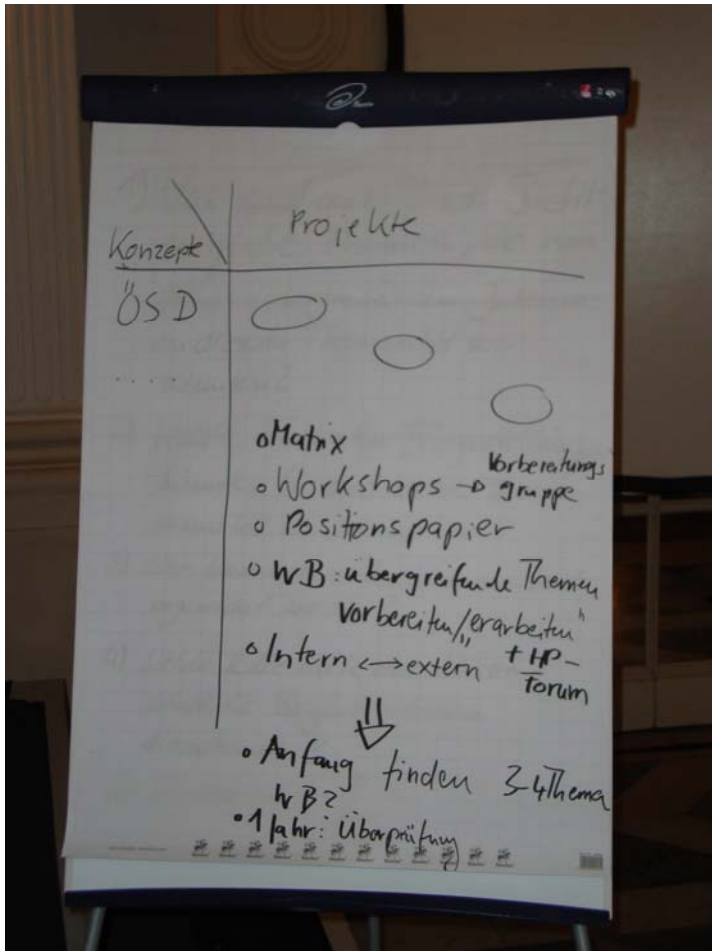 Konzepte
Projekte
ÖSD
....
o Matrix
o Workshops → Vorbereitungs
gruppe
o Positionspapier
o WB: übergreifende Themen
vorbereiten/„erarbeiten"
o Intern ↔ extern + HP-
Forum
• Anfang finden 3-4 Thema
WB?
• 1 Jahr: Überprüfung